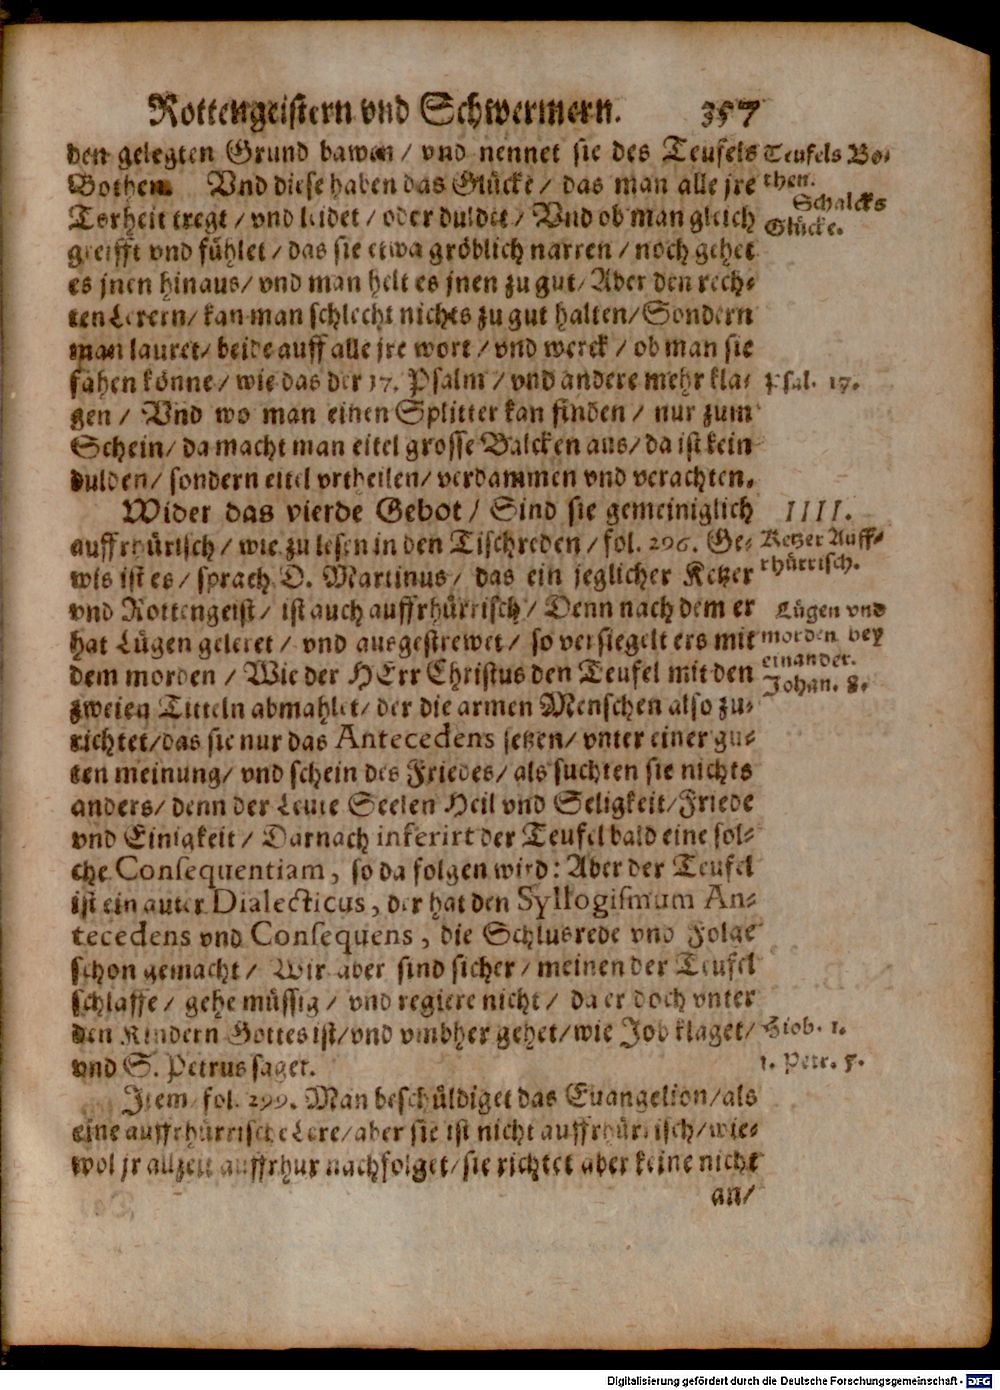 Rottengeistern vnd Schwermern. 357
den gelegten Grund bawen / vnd nennet sie des Teufels
Bothen. Vnd diese haben das Glücke / das man alle jre
Torheit tregt / vnd leidet / oder duldet / Vnd ob man gleich
greifft vnd fühlet / das sie etwa gröblich narren / noch gehet
es jnen hinaus / vnd man helt es jnen zu gut / Aber den rech-
ten Lerern / kan man schlecht nichts zu gut halten / Sondern
man lauret / beide auff alle jre wort / vnd werck / ob man sie
fahen könne / wie das der 17. Psalm / vnd andere mehr kla-
gen / Vnd wo man einen Splitter kan finden / nur zum
Schein / da macht man eitel grosse Balcken aus / da ist kein
dulden / sondern eitel vrtheilen / verdammen vnd verachten.
Wider das vierde Gebot / Sind sie gemeiniglich
auffrhürisch / wie zu lesen in den Tischreden / fol. 296. Ge-
wis ist es / sprach D. Martinus / das ein jeglicher Ketzer
vnd Rottengeist / ist auch auffrhürrisch / Denn nach dem er
hat Lügen geleret / vnd ausgestrewet / so versiegelt ers mit
dem morden / Wie der HErr Christus den Teufel mit den
zweien Titteln abmahlet / der die armen Menschen also zu-
richtet / das sie nur das Antecedens setzen / vnter einer gu-
ten meinung / vnd schein des Friedes / als suchten sie nichts
anders / denn der Leute Seelen Heil vnd Seligkeit / Friede
vnd Einigkeit / Darnach inferirt der Teufel bald eine sol-
che Consequentiam, so da folgen wird: Aber der Teufel
ist ein guter Dialecticus, der hat den Syllogismum An-
tecedens vnd Consequens, die Schlusrede vnd Folge
schon gemacht / Wir aber sind sicher / meinen der Teufel
schlaffe / gehe müssig / vnd regiere nicht / da er doch vnter
den Kindern Gottes ist / vnd vmbher gehet / wie Job klaget /
vnd S. Petrus saget.
Item fol. 299. Man beschüldiget das Euangelion / als
eine auffrhürrische Lere / aber sie ist nicht auffrhürrisch / wie-
wol jr allzeit auffrhur nachfolget / sie richtet aber keine nicht
an /
Teufels Bo-
then.
Schalcks
Glücke.
Psal. 17.
IIII.
Ketzer Auff-
rhürrisch.
Lügen vnd
morden bey
einander.
Johan. 8.
Hiob. 1.
1. Petr. 5.
Digitalisierung gefördert durch die Deutsche Forschungsgemeinschaft - DFG